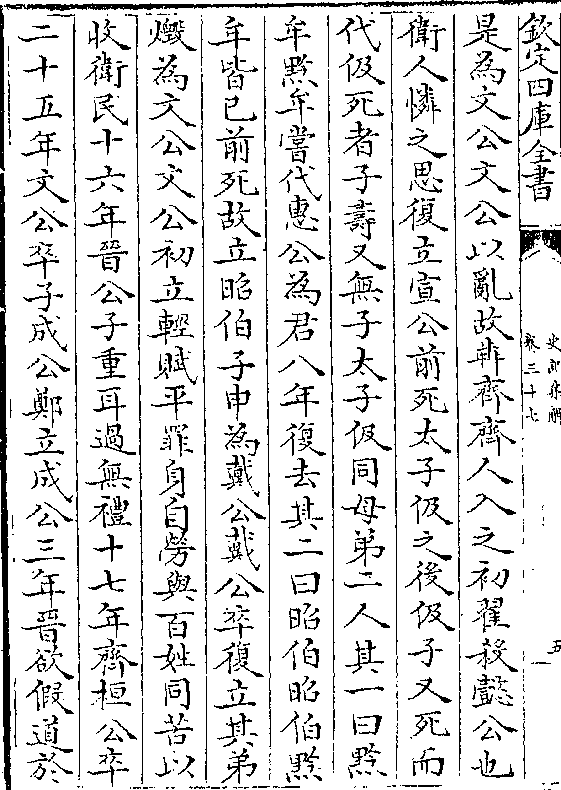 欽定四庫全書
史記集解
卷三十七
五
是為文公文公以亂故犇齊齊人入之初翟殺懿公也
衛人憐之思復立宣公前死太子伋之後伋子又死而
代伋死者子壽又無子太子伋同母弟二人其一曰黔
牟黔牟嘗代惠公為君八年復去其二曰昭伯昭伯黔
牟皆已前死故立昭伯子申為戴公戴公卒復立其弟
燬為文公文公初立輕賦平罪身自勞與百姓同苦以
收衛民十六年晉公子重耳過無禮十七年齊桓公卒
二十五年文公卒子成公鄭立成公三年晉欲假道於